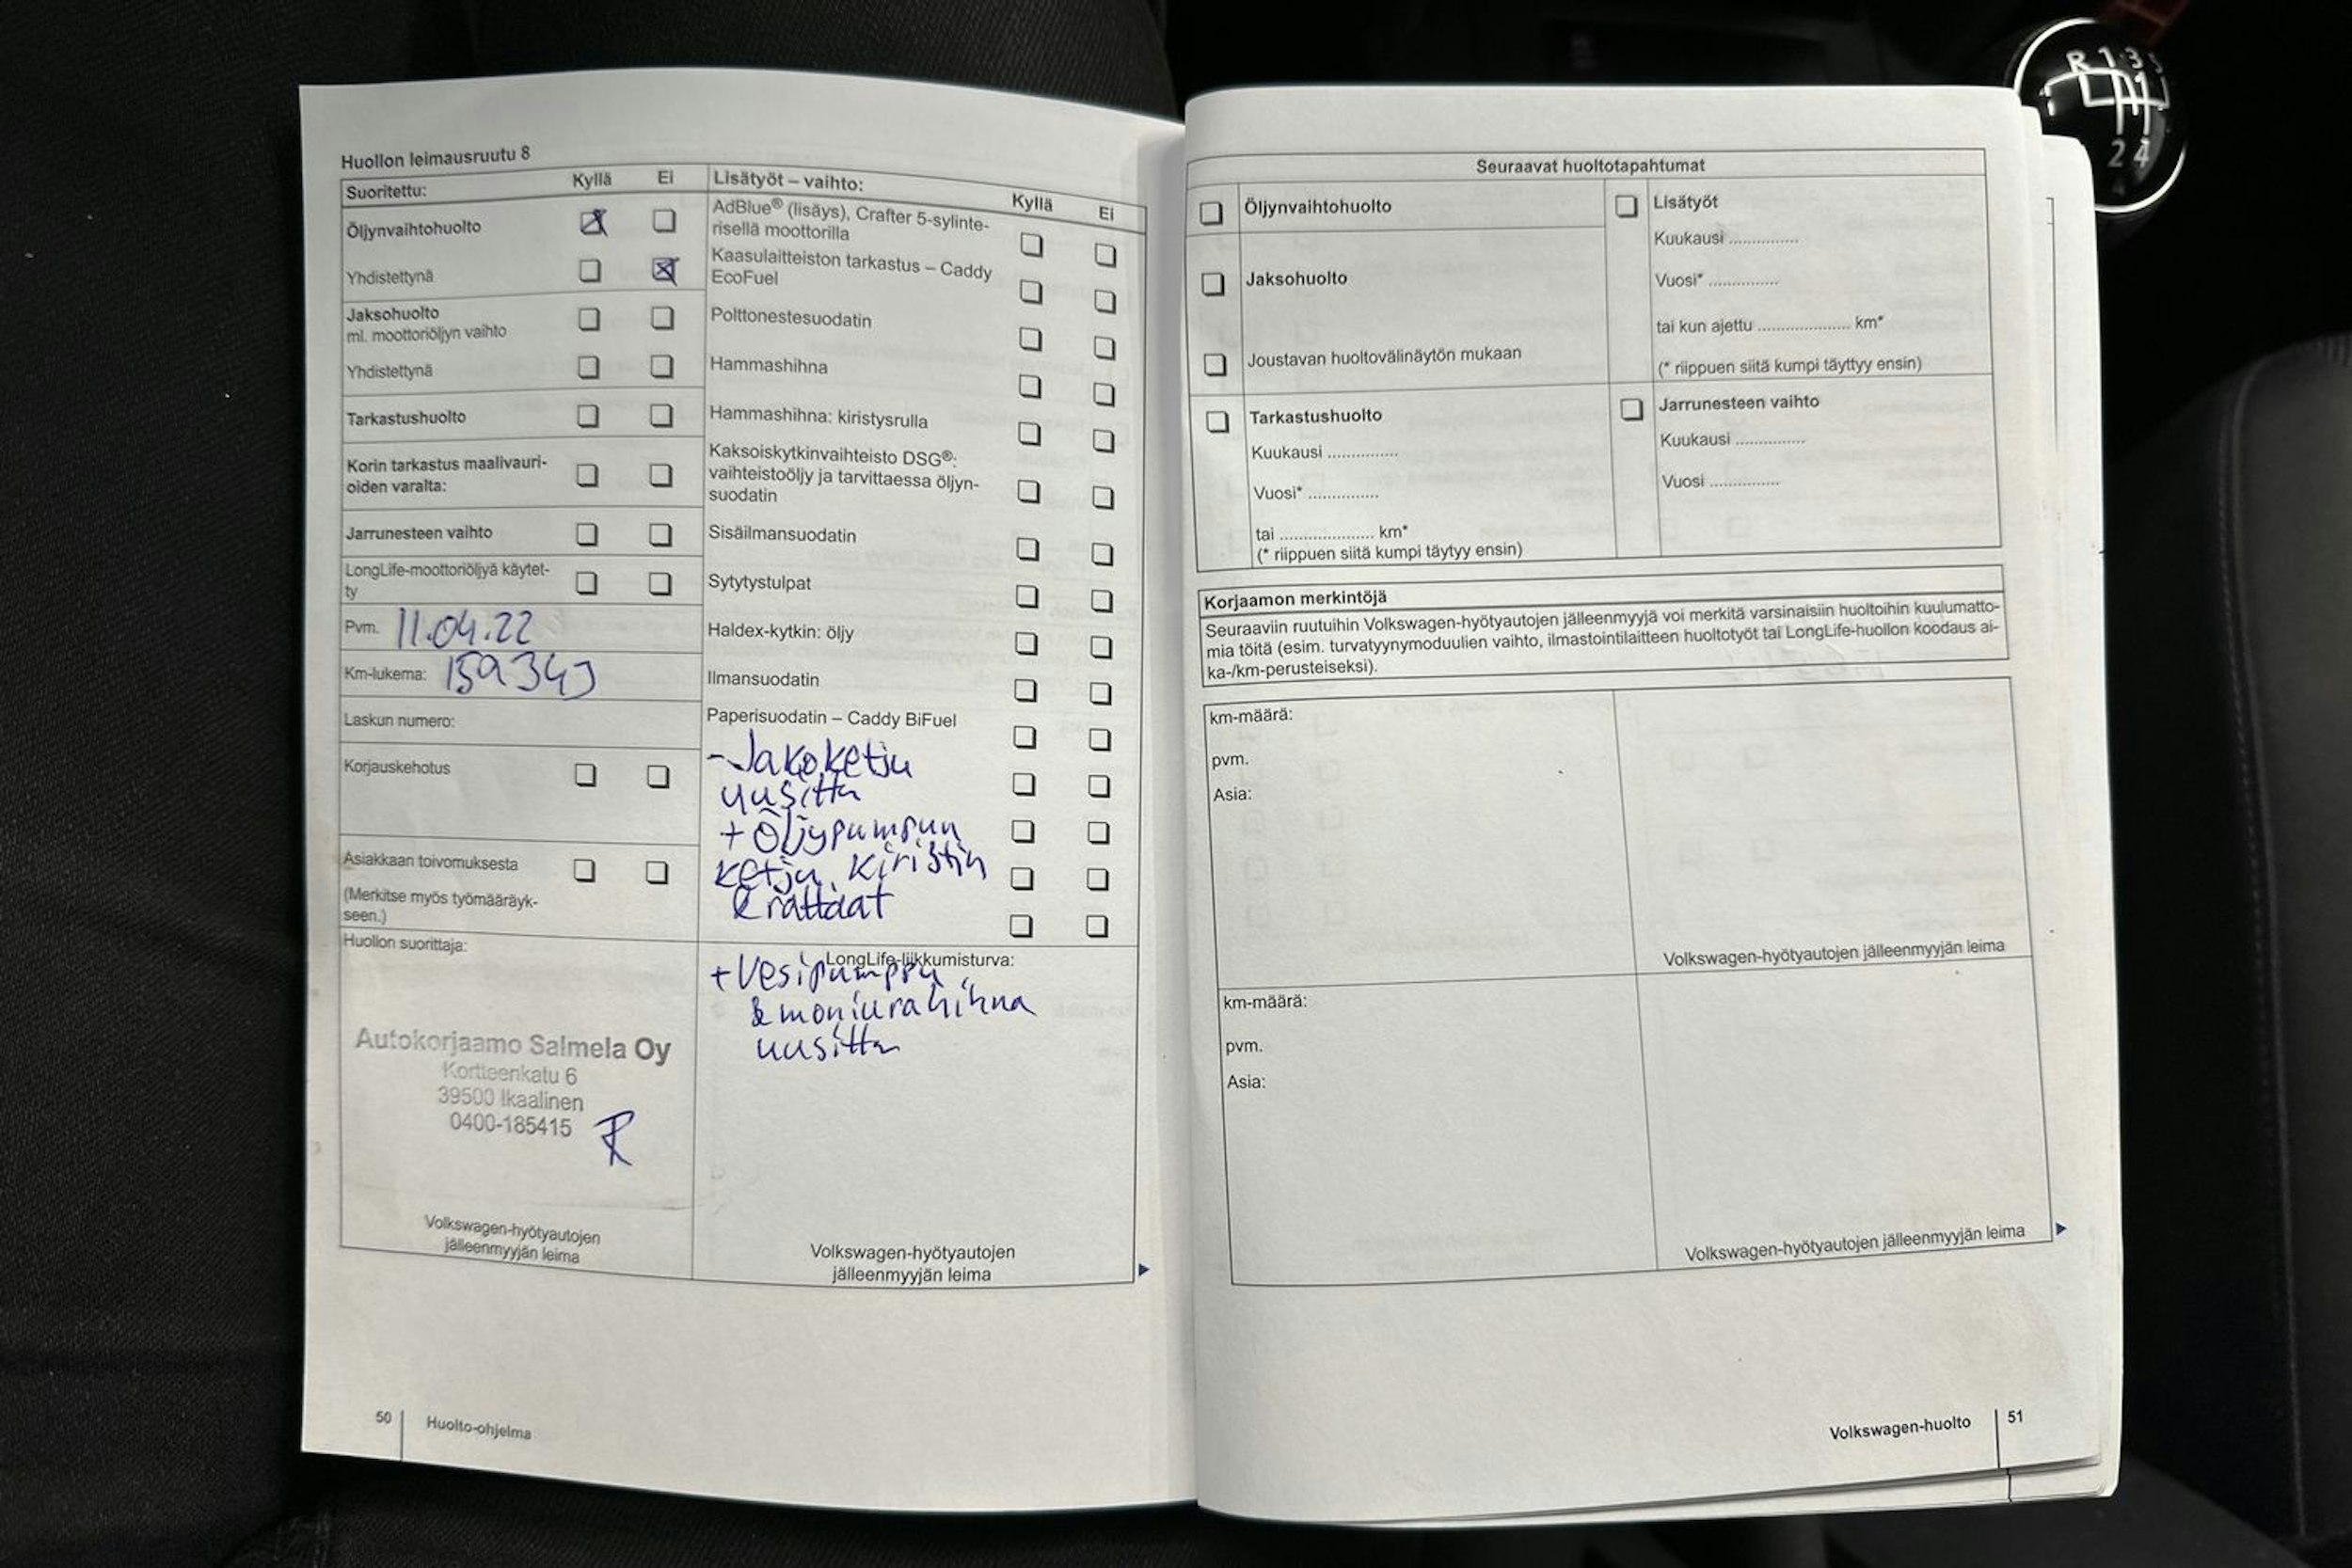 Huollon leimausruutu 8
Suoritettu: Kyllä Ei
Öljynvaihtohuolto
Yhdistettynä
Jaksohuolto
ml. moottoriöljyn vaihto
Yhdistettynä
Tarkastushuolto
Korin tarkastus maalivauri-
oiden varalta:
Jarrunesteen vaihto
LongLife-moottoriöljyä käytet-
ty
Pvm. 11.04.22
Km-lukema: 159343
Laskun numero:
Korjauskehotus
Asiakkaan toivomuksesta
(Merkitse myös työmääräyk-
seen.)
Huollon suorittaja:
Autokorjaamo Salmela Oy
Kortteenkatu 6
39500 Ikaalinen
0400-185415
Volkswagen-hyötyautojen
jälleenmyyjän leima
Lisätyöt – vaihto: Kyllä Ei
AdBlue® (lisäys), Crafter 5-sylinte-
risellä moottorilla
Kaasulaitteiston tarkastus – Caddy
EcoFuel
Polttonestesuodatin
Hammashihna
Hammashihna: kiristysrulla
Kaksoiskytkinvaihteisto DSG®:
vaihteistoöljy ja tarvittaessa öljyn-
suodatin
Sisäilmansuodatin
Sytytystulpat
Haldex-kytkin: öljy
Ilmansuodatin
Paperisuodatin – Caddy BiFuel
- Jakoketju
uusittu
+ Öljypumpun
ketju, kiristin
& rattaat
LongLife-liikkumisturva:
+ Vesipumppu
& moniurahihna
uusittu
Volkswagen-hyötyautojen
jälleenmyyjän leima
50 Huolto-ohjelma
Seuraavat huoltotapahtumat
Öljynvaihtohuolto
Jaksohuolto
Joustavan huoltovälinäytön mukaan
Tarkastushuolto
Kuukausi ...............
Vuosi* ...............
tai .................... km*
(* riippuen siitä kumpi täytyy ensin)
Lisätyöt
Kuukausi ...............
Vuosi* ...............
tai kun ajettu .................... km*
(* riippuen siitä kumpi täyttyy ensin)
Jarrunesteen vaihto
Kuukausi ...............
Vuosi ...............
Korjaamon merkintöjä
Seuraaviin ruutuihin Volkswagen-hyötyautojen jälleenmyyjä voi merkitä varsinaisiin huoltoihin kuulumatto-
mia töitä (esim. turvatyynymoduulien vaihto, ilmastointilaitteen huoltotyöt tai LongLife-huollon koodaus ai-
ka-/km-perusteiseksi).
km-määrä:
pvm.
Asia:
Volkswagen-hyötyautojen jälleenmyyjän leima
km-määrä:
pvm.
Asia:
Volkswagen-hyötyautojen jälleenmyyjän leima
Volkswagen-huolto 51
R 1 3 5
2 4